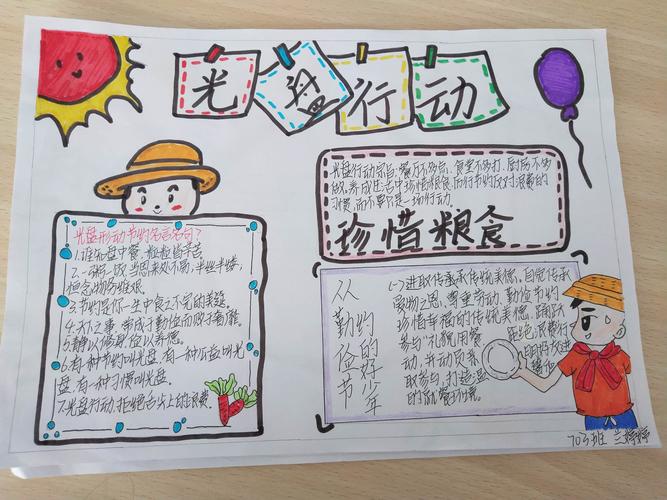 光盘行动
光盘行动宗旨:餐厅不多点、食堂不多打、厨房不多
做,养成生活中珍惜粮食、厉行节约反对浪费的
习惯,而不要只是一场行动。
珍惜粮食
光盘行动节约名言名句?
1.谁知盘中餐,粒粒皆辛苦
2.一粥一饭当思来处不易,半丝半缕,
恒念物力维艰。
3.节约是你一生中食之不完的美筵。
4.天下之事,常成于勤俭而败于奢靡。
5.静以修身,俭以养德。
6.有一种节约叫光盘,有一种公益叫光
盘,有一种习惯叫光盘。
7.光盘行动,拒绝舌尖上的浪费。
从勤俭节约的好少年
(一)进取传承传统美德,自觉传承
爱物之恩,尊重劳动、勤俭节约
珍惜幸福的传统美德,踊跃
参与"礼貌用餐
动,并动员养
取参与,打造温
的
拒绝浪费行
703班 兰婷婷